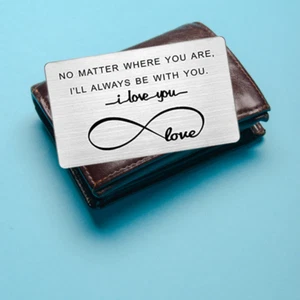 NO MATTER WHERE YOU ARE,
I'LL ALWAYS BE WITH YOU.
i love you
love